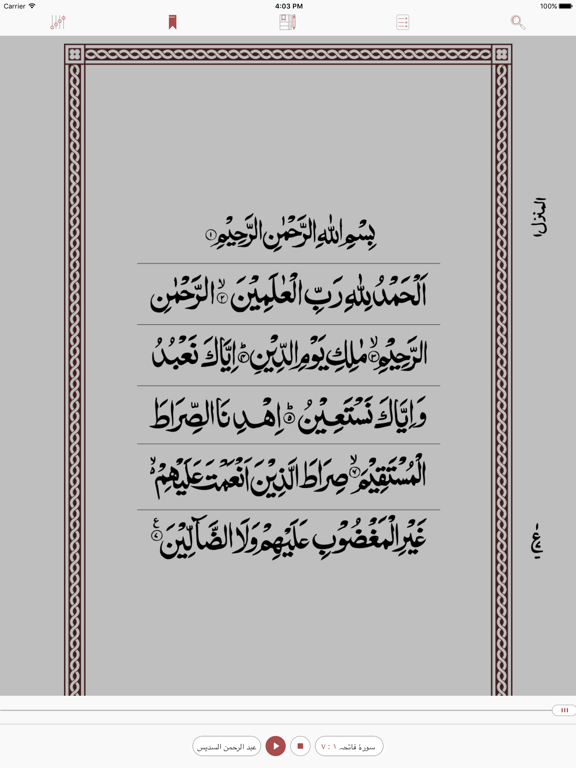 Carrier 4:03 PM 100%
المنزل١
بِسْمِ اللّٰهِ الرَّحْمٰنِ الرَّحِيْمِ ۝١
اَلْحَمْدُ لِلّٰهِ رَبِّ الْعٰلَمِيْنَ ۝٢ۙ الرَّحْمٰنِ
الرَّحِيْمِ ۝٣ۙ مٰلِكِ يَوْمِ الدِّيْنِ ۝٤ؕ اِيَّاكَ نَعْبُدُ
وَاِيَّاكَ نَسْتَعِيْنُ ۝٥ؕ اِهْدِنَا الصِّرَاطَ
الْمُسْتَقِيْمَ ۝ۙ صِرَاطَ الَّذِيْنَ اَنْعَمْتَ عَلَيْهِمْ ۙ
غَيْرِ الْمَغْضُوْبِ عَلَيْهِمْ وَلَا الضَّآلِّيْنَ ۝٧ع
سورۂ فاتحہ ١ : ٧ عبد الرحمن السديس